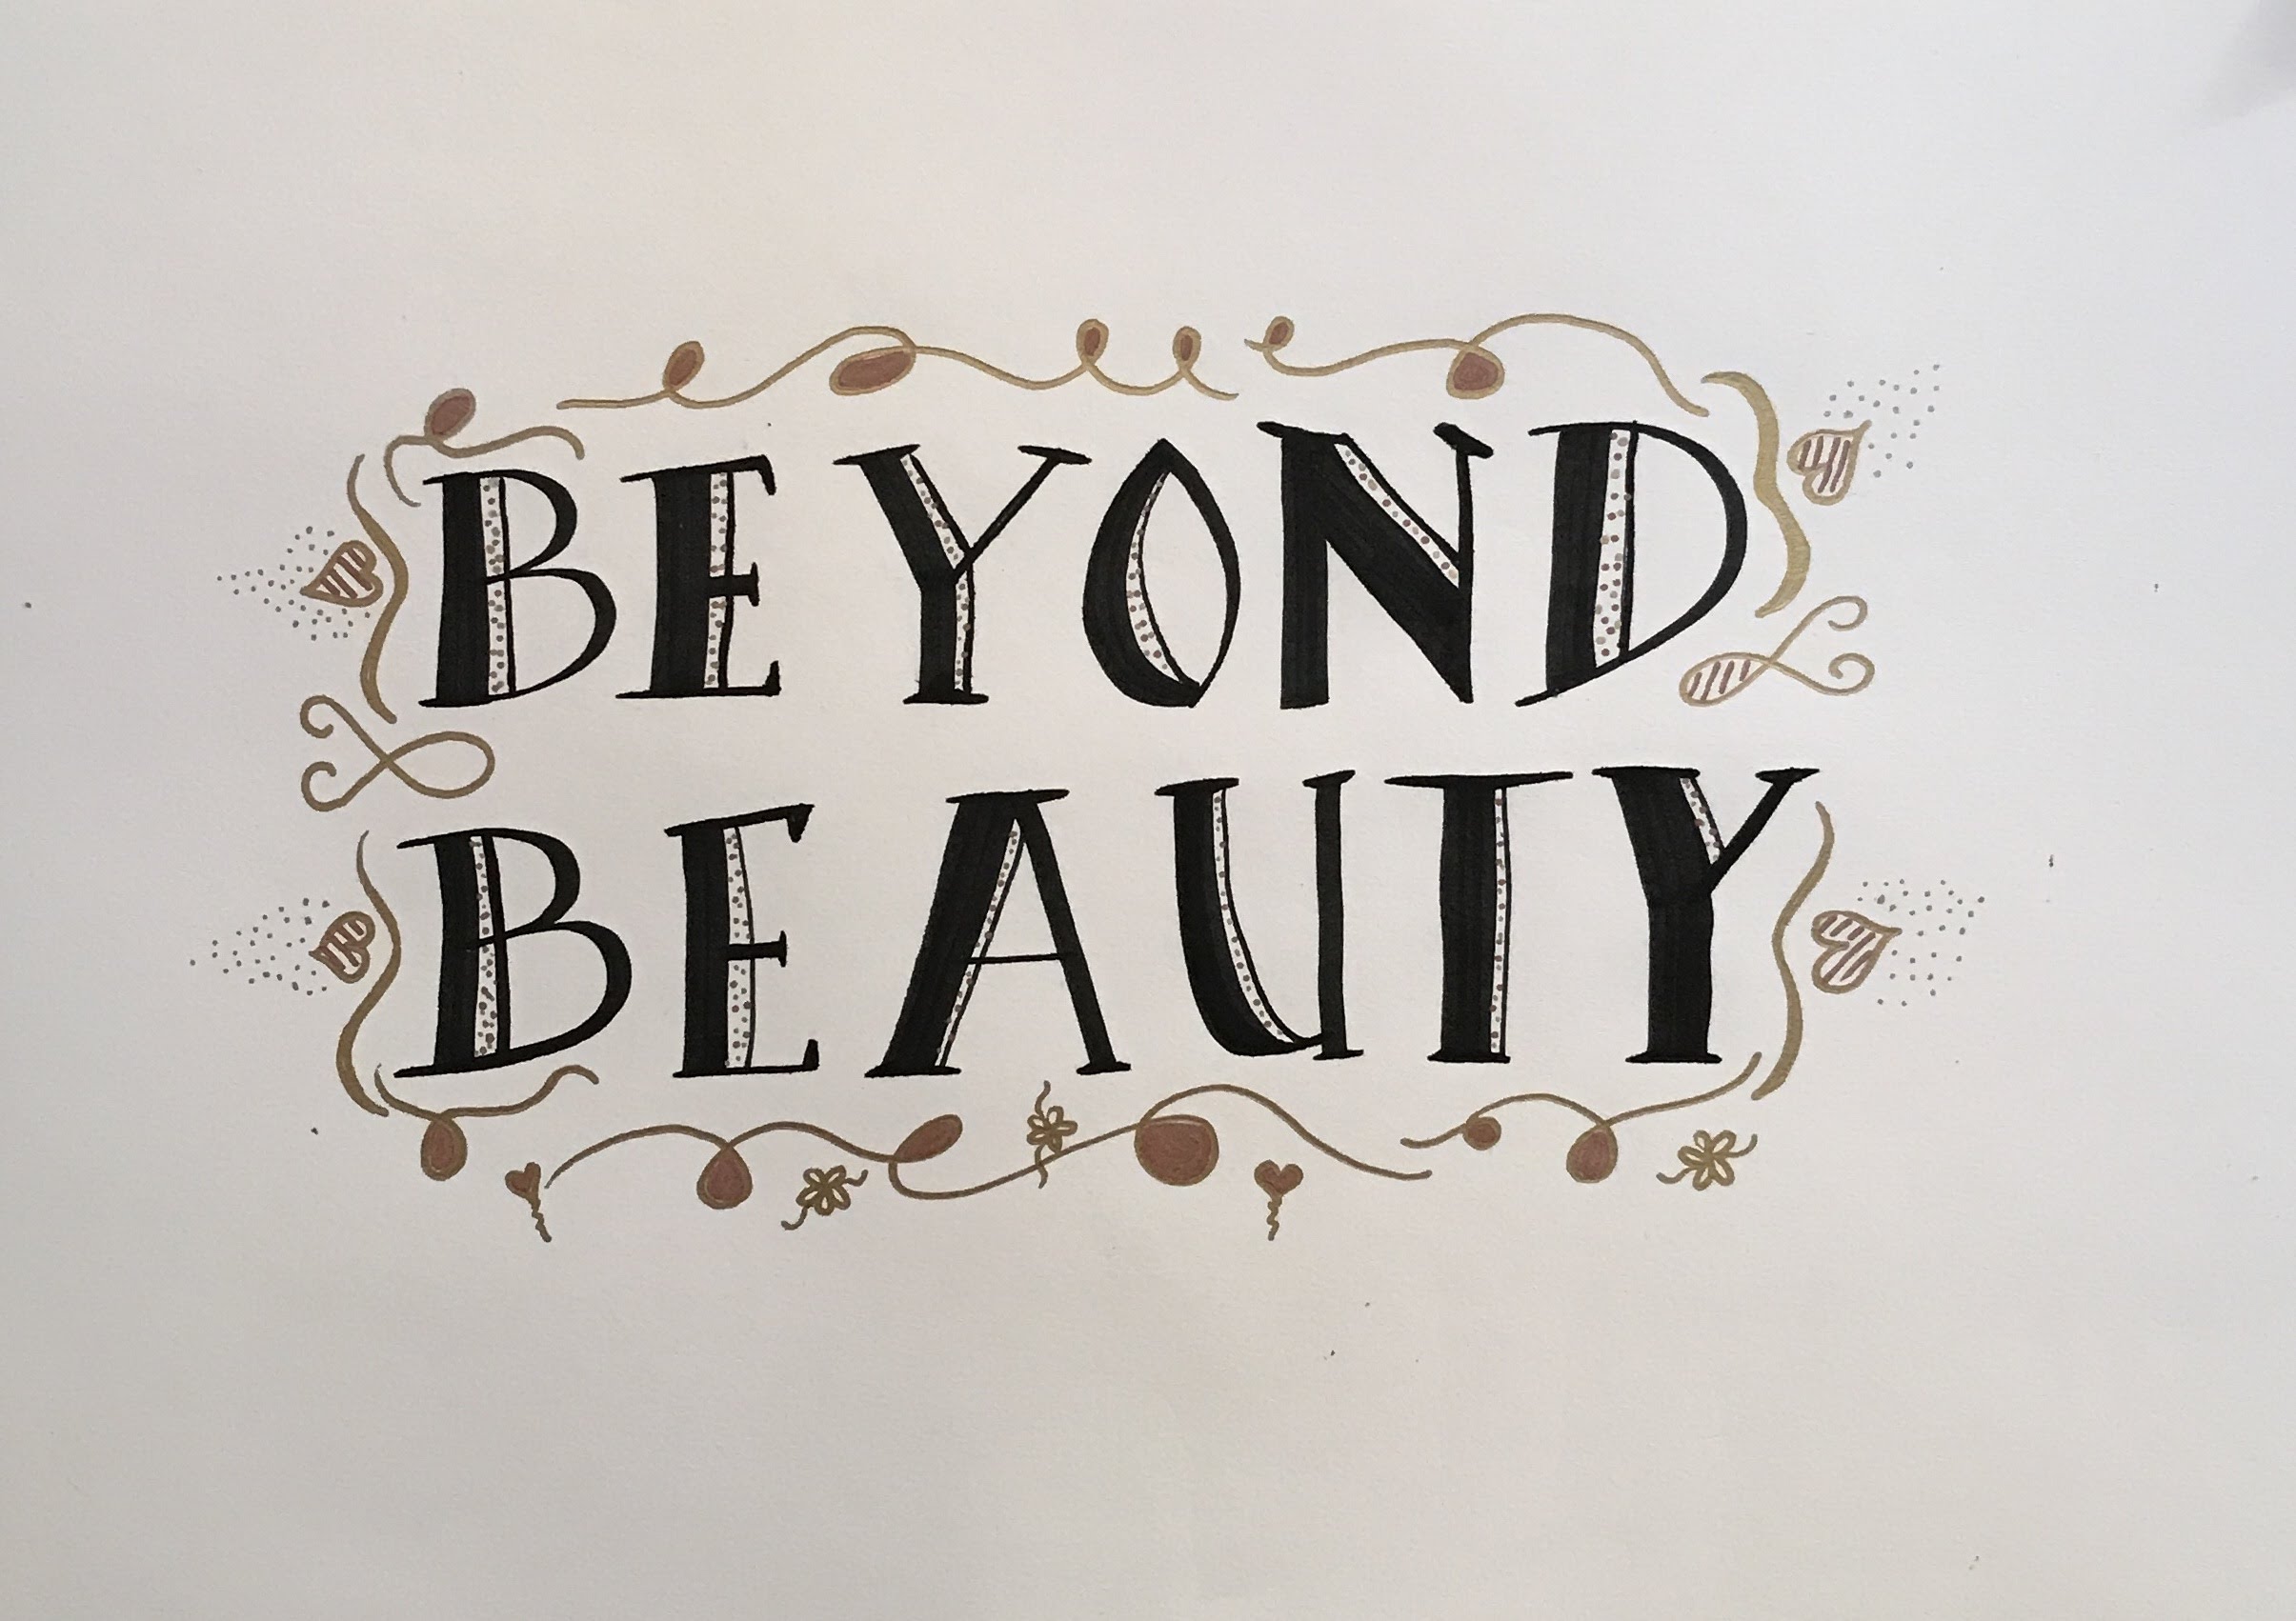 BEYOND
BEAUTY